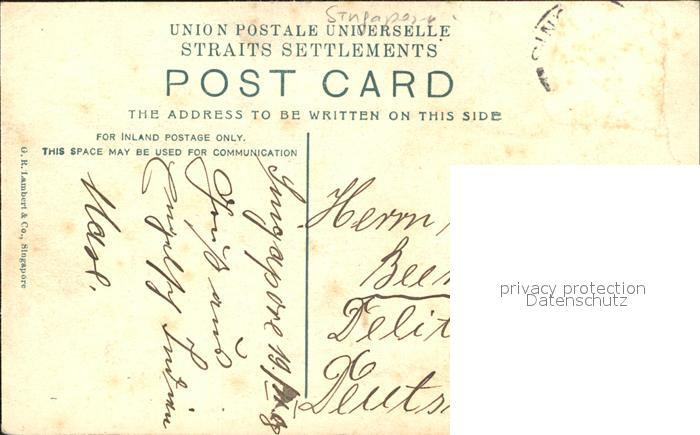 Singapore
UNION POSTALE UNIVERSELLE
STRAITS SETTLEMENTS
POST CARD
THE ADDRESS TO BE WRITTEN ON THIS SIDE
FOR INLAND POSTAGE ONLY.
THIS SPACE MAY BE USED FOR COMMUNICATION
G. R. Lambert & Co., Singapore
Singapore 19.
Gruß aus
Indien
Herrn
Delit
Deuts
privacy protection
Datenschutz